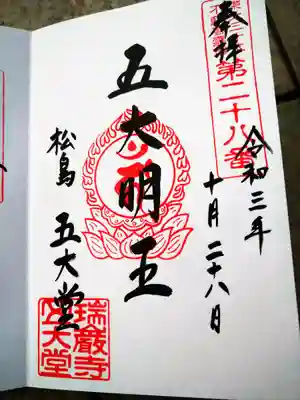 奉拝
第二十八番
令和三年
十月二十八日
五大明王
松島 五大堂
瑞巌寺
五大堂